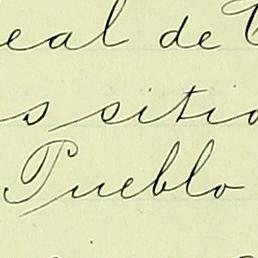 eal de
s sitio
Pueblo